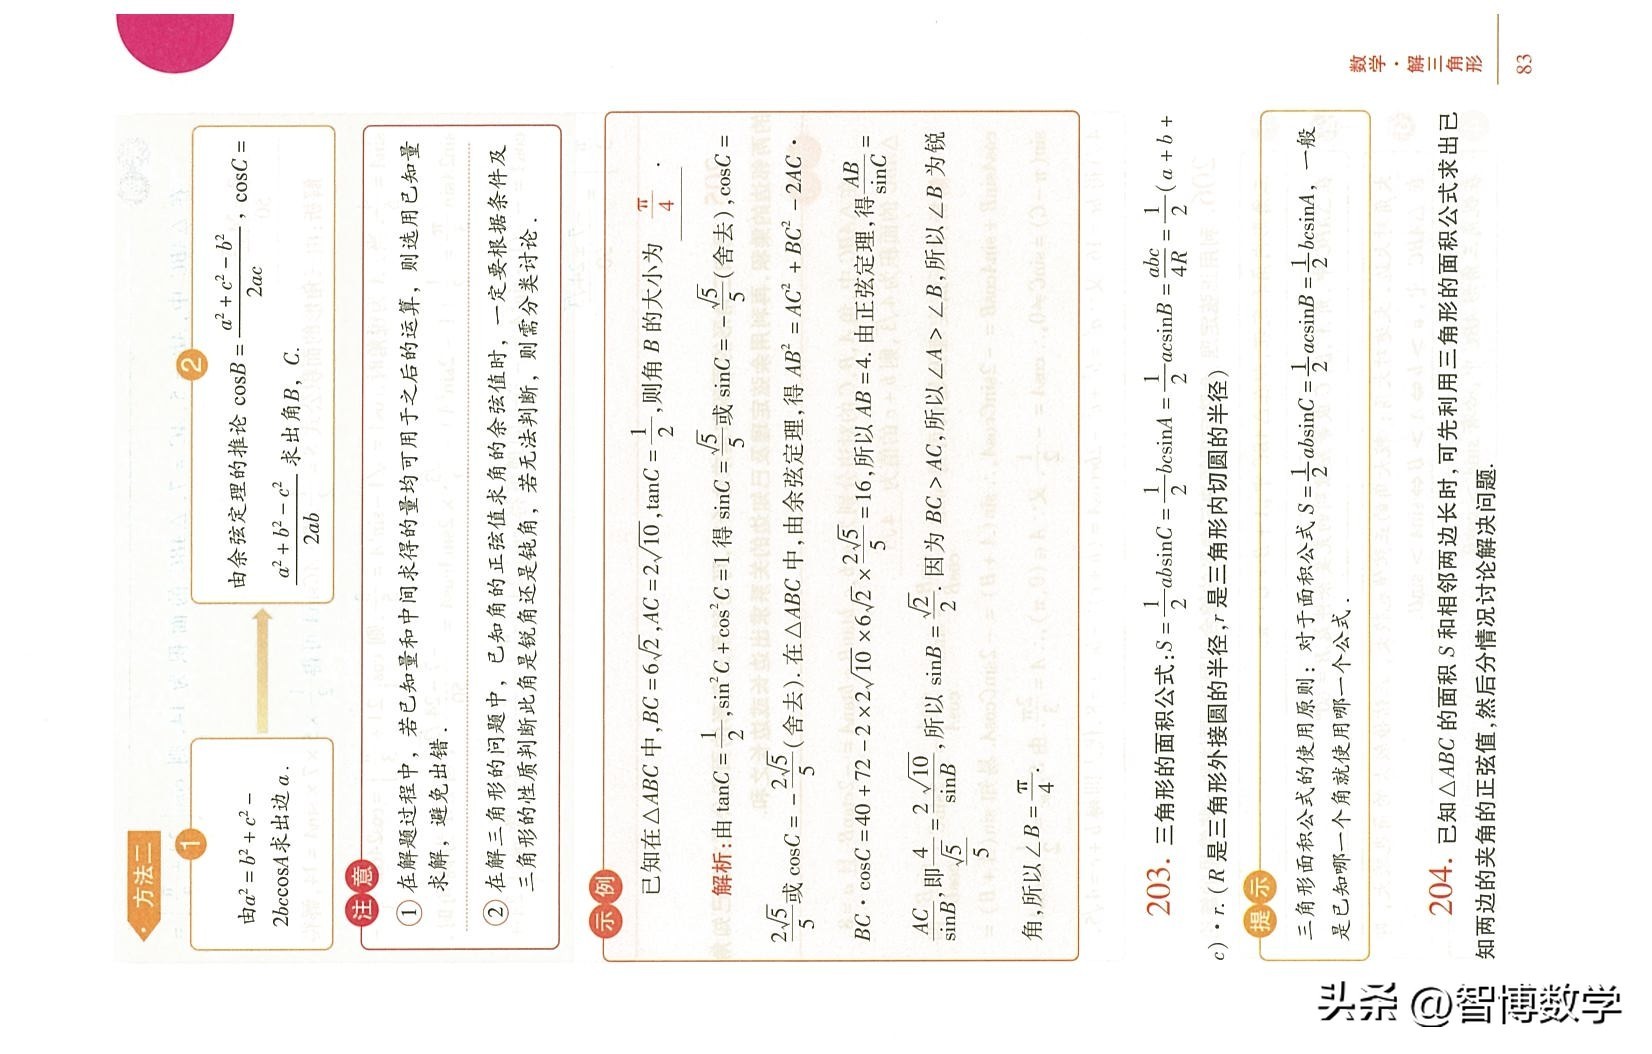 数学·解三角形
83
方法二
1
由a²=b²+c²-
2bccosA求出边a.
2
由余弦定理的推论 cosB=\frac{a²+c²-b²}{2ac}, cosC=
\frac{a²+b²-c²}{2ab}求出角B，C.
注意
① 在解题过程中，若已知量和中间求得的量均可用于之后的运算，则选用已知量
求解，避免出错.
② 在解三角形的问题中，已知角的正弦值求角的余弦值时，一定要根据条件及
三角形的性质判断此角是锐角还是钝角，若无法判断，则需分类讨论.
示例
已知在△ABC中,BC=6√2,AC=2√10,tanC=\frac{1}{2},则角B的大小为 \frac{π}{4} .
解析:由tanC=\frac{1}{2},sin²C+cos²C=1得sinC=\frac{√5}{5}或sinC=-\frac{√5}{5}(舍去),cosC=
\frac{2√5}{5}或cosC=-\frac{2√5}{5}(舍去).在△ABC中,由余弦定理,得AB²=AC²+BC²-2AC·
BC·cosC=40+72-2×2√10×6√2×\frac{2√5}{5}=16,所以AB=4.由正弦定理,得\frac{AB}{sinC}=
\frac{AC}{sinB},即\frac{4}{\frac{√5}{5}}=\frac{2√10}{sinB},所以sinB=\frac{√2}{2}.因为BC>AC,所以∠A>∠B,所以∠B为锐
角,所以∠B=\frac{π}{4}.
203. 三角形的面积公式:S=\frac{1}{2}absinC=\frac{1}{2}bcsinA=\frac{1}{2}acsinB=\frac{abc}{4R}=\frac{1}{2}(a+b+
c)·r.(R是三角形外接圆的半径,r是三角形内切圆的半径)
提示
三角形面积公式的使用原则：对于面积公式S=\frac{1}{2}absinC=\frac{1}{2}acsinB=\frac{1}{2}bcsinA，一般
是已知哪一个角就使用哪一个公式.
204. 已知△ABC的面积S和相邻两边长时,可先利用三角形的面积公式求出已
知两边的夹角的正弦值,然后分情况讨论解决问题.
头条 @智博数学